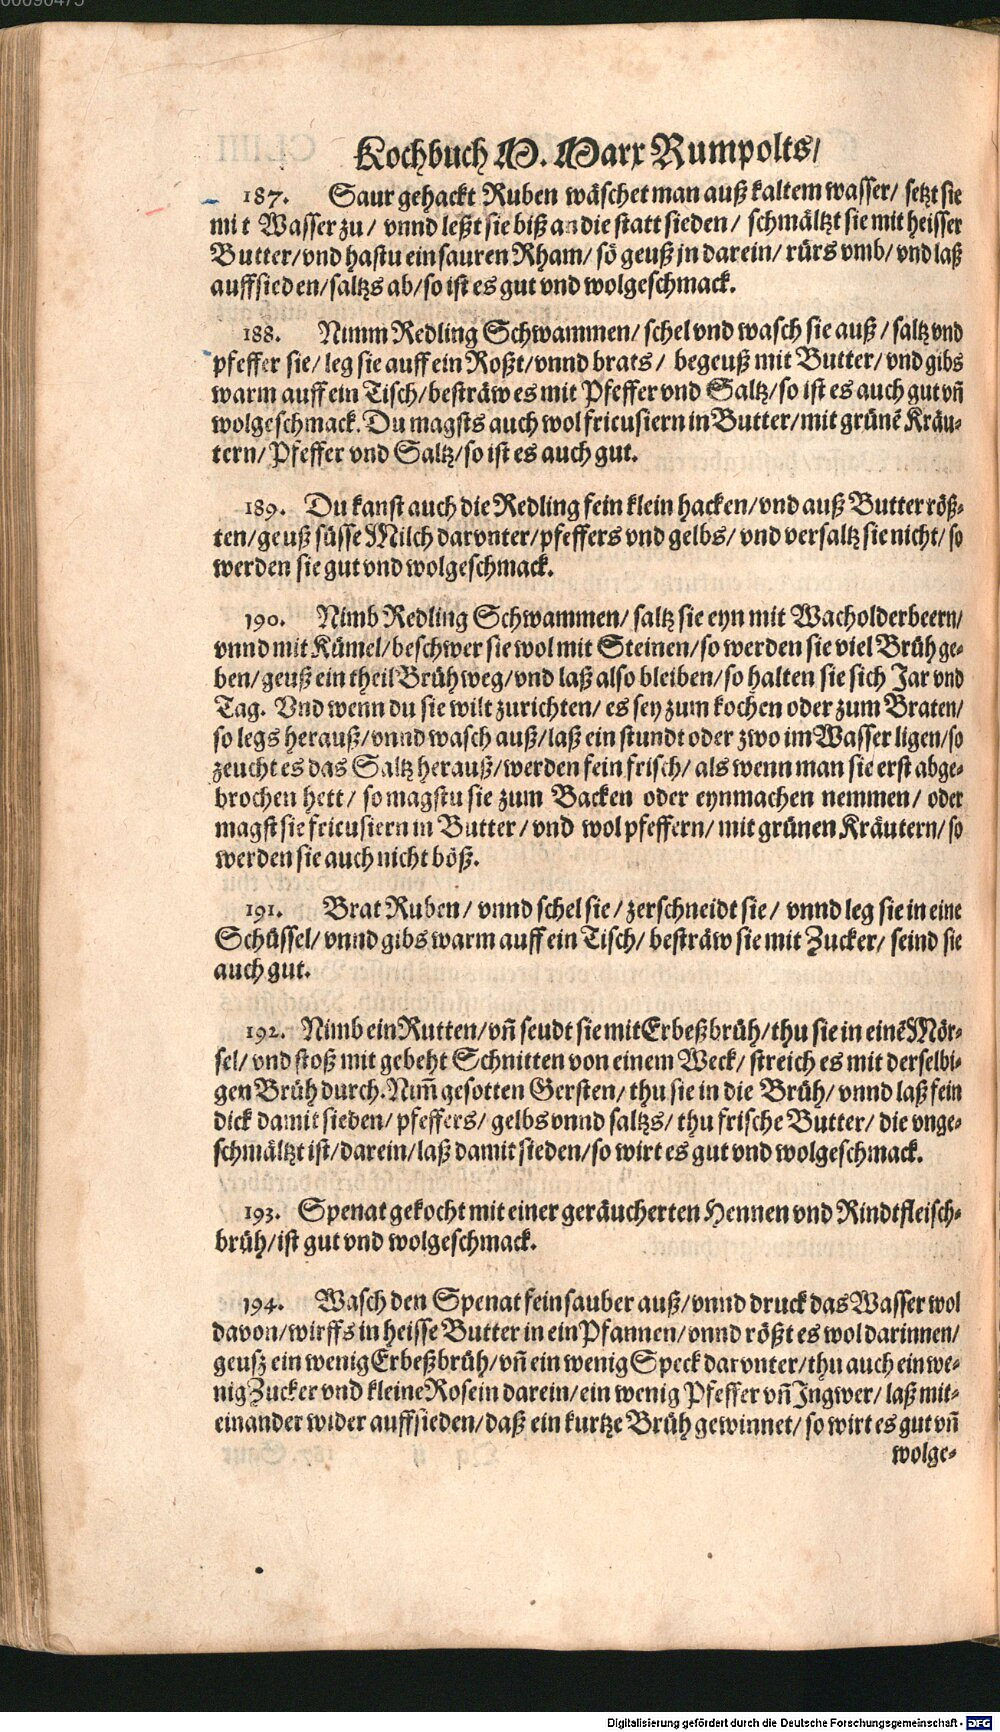 00090475
Kochbuch M. Marx Rumpolts/
187. Saur gehackt Ruben wäschet man auß kaltem wasser/ setzt sie
mit Wasser zu/ vnnd leßt sie biß an die statt sieden/ schmältzt sie mit heisser
Butter/ vnd hastu ein sauren Rham/ so geuß jn darein/ rürs vmb/ vnd laß
auffsieden/ saltzs ab/ so ist es gut vnd wolgeschmack.
188. Nimm Redling Schwammen/ schel vnd wasch sie auß/ saltz vnd
pfeffer sie/ leg sie auff ein Roßt/ vnnd brats/ begeuß mit Butter/ vnd gibs
warm auff ein Tisch/ besträw es mit Pfeffer vnd Saltz/ so ist es auch gut vñ
wolgeschmack. Du magsts auch wol fricusiern in Butter/ mit grünẽ Kräu-
tern/ Pfeffer vnd Saltz/ so ist es auch gut.
189. Du kanst auch die Redling fein klein hacken/ vnd auß Butter röß-
ten/ geuß süsse Milch darvnter/ pfeffers vnd gelbs/ vnd versaltz sie nicht/ so
werden sie gut vnd wolgeschmack.
190. Nimb Redling Schwammen/ saltz sie eyn mit Wacholderbeern/
vnnd mit Kümel/ beschwer sie wol mit Steinen/ so werden sie viel Brüh ge-
ben/ geuß ein theil Brüh weg/ vnd laß also bleiben/ so halten sie sich Jar vnd
Tag. Vnd wenn du sie wilt zurichten/ es sey zum kochen oder zum Braten/
so legs herauß/ vnnd wasch auß/ laß ein stundt oder zwo im Wasser ligen/ so
zeucht es das Saltz herauß/ werden fein frisch/ als wenn man sie erst abge-
brochen hett/ so magstu sie zum Backen oder eynmachen nemmen/ oder
magst sie fricusiern in Butter/ vnd wol pfeffern/ mit grünen Kräutern/ so
werden sie auch nicht böß.
191. Brat Ruben/ vnnd schel sie/ zerschneidt sie/ vnnd leg sie in eine
Schüssel/ vnnd gibs warm auff ein Tisch/ besträw sie mit Zucker/ seind sie
auch gut.
192. Nimb ein Rutten/ vñ seudt sie mit Erbeßbrüh/ thu sie in einẽ Mör-
sel/ vnd stoß mit gebeht Schnitten von einem Weck/ streich es mit derselbi-
gen Brüh durch. Nim̃ gesotten Gersten/ thu sie in die Brüh/ vnnd laß fein
dick damit sieden/ pfeffers/ gelbs vnnd saltzs/ thu frische Butter/ die vnge-
schmältzt ist/ darein/ laß damit sieden/ so wirt es gut vnd wolgeschmack.
193. Spenat gekocht mit einer geräucherten Hennen vnd Rindtfleisch-
brüh/ ist gut vnd wolgeschmack.
194. Wasch den Spenat fein sauber auß/ vnnd druck das Wasser wol
davon/ wirffs in heisse Butter in ein Pfannen/ vnnd rößt es wol darinnen/
geusz ein wenig Erbeßbrüh/ vñ ein wenig Speck darvnter/ thu auch ein we-
nig Zucker vnd kleine Rosein darein/ ein wenig Pfeffer vñ Ingwer/ laß mit-
einander wider auffsieden/ daß ein kurtze Brüh gewinnet/ so wirt es gut vñ
wolge-
Digitalisierung gefördert durch die Deutsche Forschungsgemeinschaft - DFG